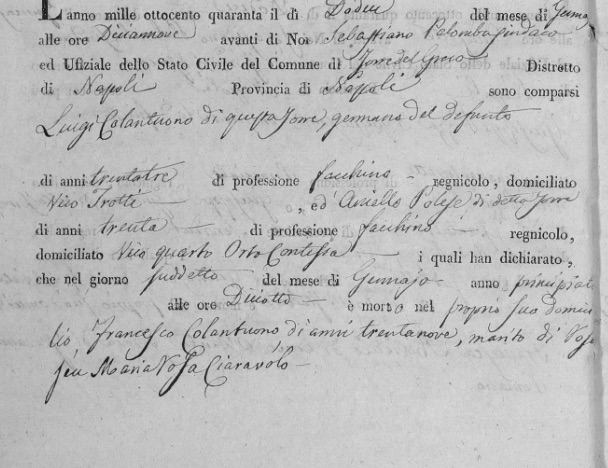 L'anno mille ottocento quaranta il dì Dodici del mese di Genna
alle ore Diciannove avanti di Noi Sebastiano Palomba Sindaco
ed Ufiziale dello Stato Civile del Comune di Torre del Greco Distretto
di Napoli Provincia di Napoli sono comparsi
Luigi Colantuono di questa Torre, germano del defunto
di anni trentatre di professione facchino regnicolo, domiciliato
Vico Trotti , ed Aniello Polese di detta Torre
di anni trenta di professione facchino regnicolo,
domiciliato Vico quarto Orto Contessa i quali han dichiarato,
che nel giorno suddetto del mese di Gennajo anno
alle ore Diciotto è morto nel proprio suo domici
lio Francesco Colantuono di anni trentanove, marito di
Maria Rosa Ciaravolo